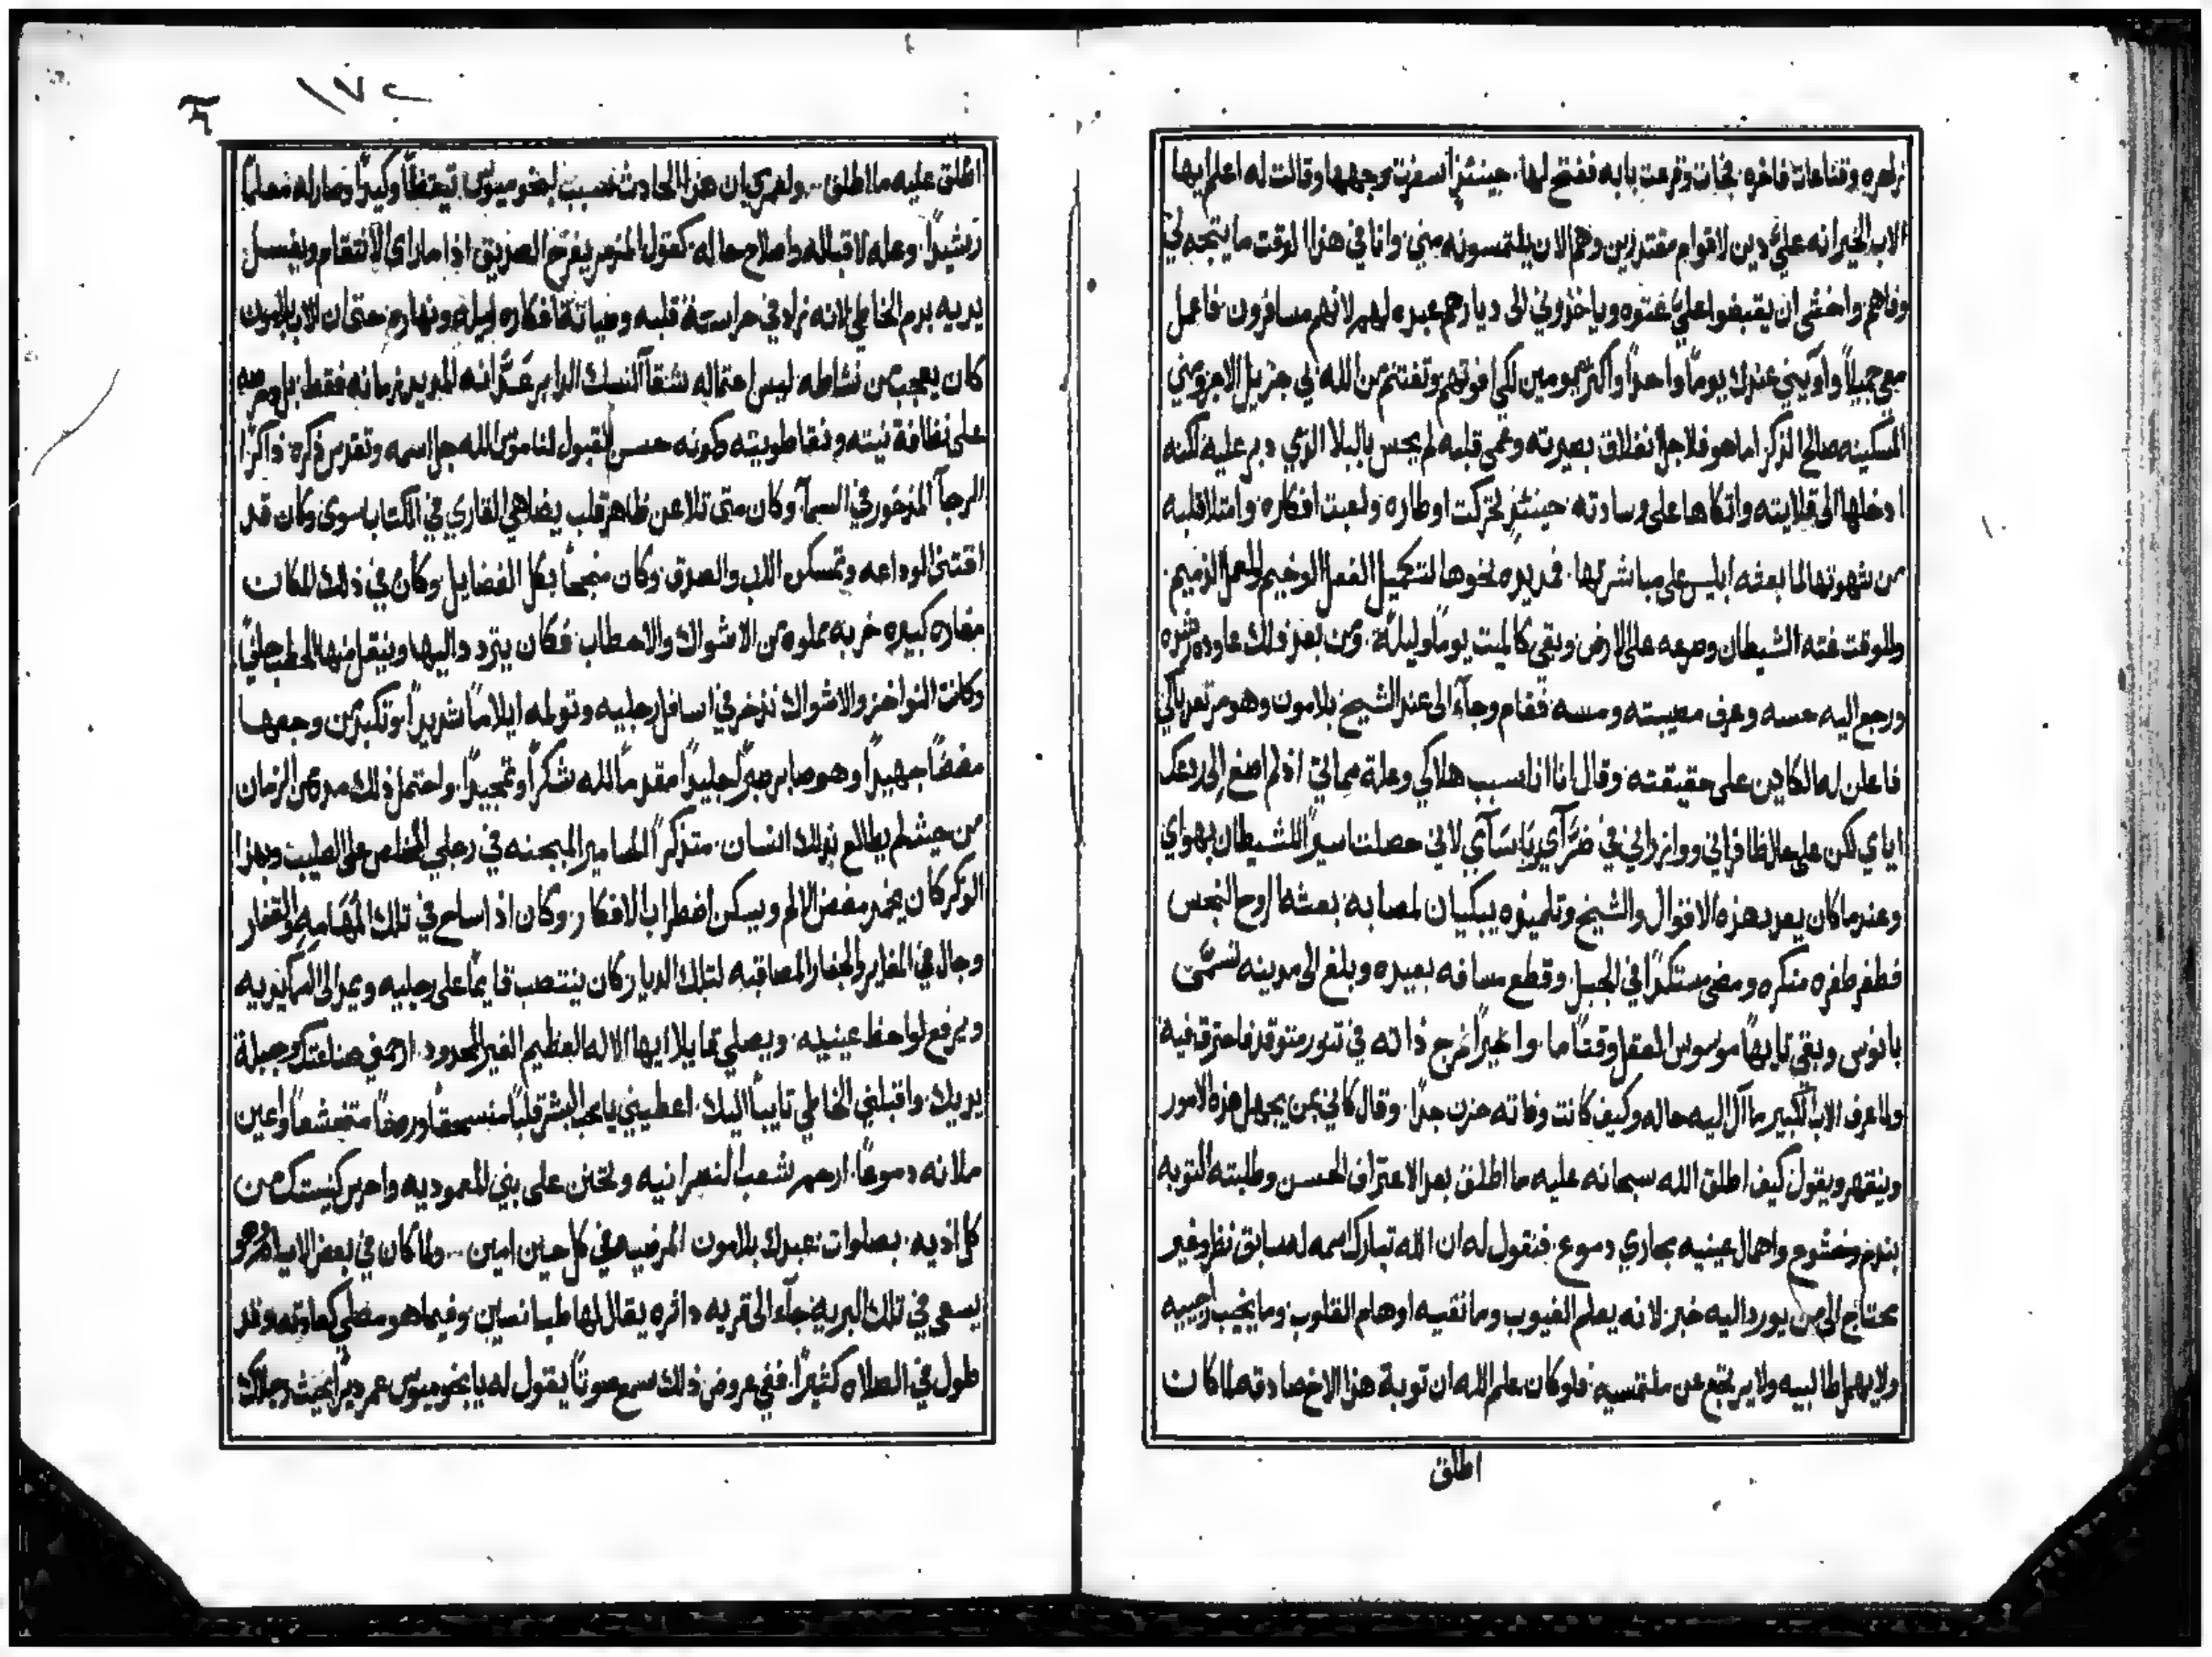 زاهره وقناعات فاخره. فجات وقرعت بابه ففتح لها. حينئذٍ اسفرت وجهها وقالت له اعلم ايها
الاب الخير انه عليَّ دين لاقوام مقتدرين وهم الان يلتمسونه مني. وانا في هذا الوقت ما يتجه لي
وفاهم واخشى ان يقبضوا عليَّ عنوه وياخذوني الى ديارهم عبده لهم لانهم مسافرون. فاعمل
معي جميلاً وآويني عندك يوماً واحداً واكثر يومين لكي افوتهم وتغتنم من الله في جزيل الاجر ومني
المسكينه صالح الذكر. اما هو فلاجل انغلاق بصيرته وعمى قلبه لم يحس بالبلا الذي دبر عليه لكنه
ادخلها الى قلايته واتكاها على وسادته. حينئذٍ تحركت اوطاره ولعبت افكاره. وامتلا قلبه
من شهوتها لما بعثه ابليس على مباشرتها. فمد يده نحوها لتكميل الفعل الوخيم والعمل الذميم.
وللوقت غته الشيطان وصرعه على الارض وبقي كالميت يوماً وليلةً. ومن بعد ذلك عاوده رشده
ورجع اليه حسه وعرف مصيبته ومسه فقام وجآء الى عند الشيخ بلامون وهو مرتعد باكي
فاعلن له الكاين على حقيقته. وقال انا انا سبب هلاكي وعلة مماتي اذ لم اصغ الى ردعك
اياي لكن على ضرَّآي وباسآي لاني حصلت اسيراً للشيطان بهواي
وعندما كان يعدد هذه الاقوال والشيخ وتلميذه يبكيان لمصابه. بعثه الروح النجس
فطفر طفره منكره ومضى مستكداً في الجبل. وقطع مسافه بعيده وبلغ الى مدينه تسمَّى
بانوس وبقي تايهاً موسوس العقل وقتاً ما. واخيراً زج ذاته في تنور متوقد فاحترق فيه
ولما عرف الاب الكبير ما آل اليه حاله وكيف كانت وفاته حزن جداً. وقال كاني بمن يجهل هذه الامور
وينقهر ويقول كيف اطلق الله سبحانه عليه ما اطلق بعد الاعتراف الحسن وطلبته التوبه
بندم وخشوع واهمال عينيه مجاري دموع. فنقول له ان الله تبارك اسمه له سابق نظر وغير
محتاج الى من يورد اليه خبر. لانه يعلم الغيوب وما تقيه اوهام القلوب. وما يخيب راجيه
ولا يهمل طالبيه ولا يرتجع عن ملتمسيه. فلو كان علم الله ان توبة هذا الاخ صادقه لما كان
اطلق
١٧٢
اطلق عليه ما اطلق.. ولعمري ان هذا الحادث سبب لبخوميوس تيقظاً وكيداً وصار له معلماً
رشيداً. وعله لاقباله واصلاح حاله. كقول المزمور يفرح الصديق اذا ما راى الانتقام ويغسل
يديه بدم الخاطي لانه زاد في حراسة قلبه وصيانة افكاره ليله ونهاره حتى ان الاب بلامون
كان يعجب من نشاطه. ليس احتماله شقآ النسك الدابر عَدَّ انه المديد زمانه فقط. بل وحرصه
على نظافة نيته ونقا طويته كونه حسن القبول لناموس الله جل اسمه وتقدس ذكره ذاكراً
الرجآ المذخور في السمآ. وكان متى تلا عن ظاهر قلب يضاهي القاري في الكتاب سوى وكان قد
اقتنى الوداعه وتمسكن اللب والصدق. وكان متجحاً بكل الفضايل وكان في ذلك المكان
مغاره كبيره خربه مملوه من الاشواك والاحطاب. فكان يتردد واليها وينقل منها الحطب حافياً
وكانت النواخز والاشواك تذخر في اسافل رجليه وتولمه ايلاماً شديداً وتكبد من وجعها
مضضاً جهيداً وهو صابر صبراً جليداً مقدماً لله شكراً وتمجيداً. واحتمل ذلك مده من الزمان
من حيث لم يطالع بذلك انسان. متذكراً المسامير في رجلي المخلص على الصليب وبهذا
التذكر كان يخمد مضض الالم ويسكن اضطراب الافكار. وكان اذا ساح في تلك المَهَامِه والقفار
وجال في المغاير والحفار المصاقبه لتلك الديار كان ينتصب قايماً على رجليه ويمد الى السما يديه
ويرفع لواحظ عينيه. ويصلي قايلاً ايها الاله العظيم الغير المحدود. ارحمني صناعتك وجبلة
يديك. واقبلني الخاطي تايباً اليك. اعطيني يا محب البشر قلباً منسحقاً وروحاً متخشعاً واعين
ملانه دموعاً. ارحم شعب النصرانيه وتحنن على بني المعموديه واحرس كنيستك من
كل اذيه. بصلوات عبدك بلامون المرضيه في كل حين امين.. ولما كان في بعض الايام وهو
يسعى في تلك البريه جآء الى قريه دائره يقال لها طبانسين. وفيما هو مصلي كعادته وقد
طول في الصلاه كثيراً. ففي عروض ذلك سمع صوتاً يقول له يا بخوميوس عمر ديراً بحيث رجلاك